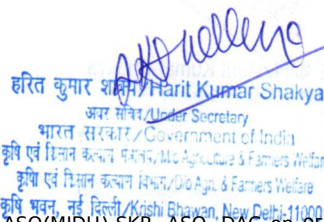 हरित कुमार शाक्य/Harit Kumar Shakya
अवर सचिव/Under Secretary
भारत सरकार/Government of India
कृषि एवं किसान कल्याण मंत्रालय/M/o Agriculture & Farmers Welfare
कृषि एवं किसान कल्याण विभाग/D/o Agri. & Farmers Welfare
कृषि भवन, नई दिल्ली/Krishi Bhawan, New Delhi-11000
ASO(MIDH) SKB, ASO, DAC